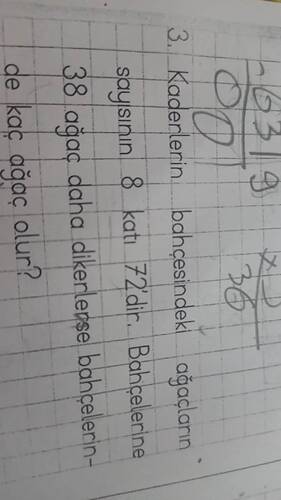 3. Kaderlerin bahçesindeki ağaçların
sayısının 8 katı 72'dir. Bahçelerine
38 ağaç daha dikerlerse bahçelerin-
de kaç ağaç olur?
36